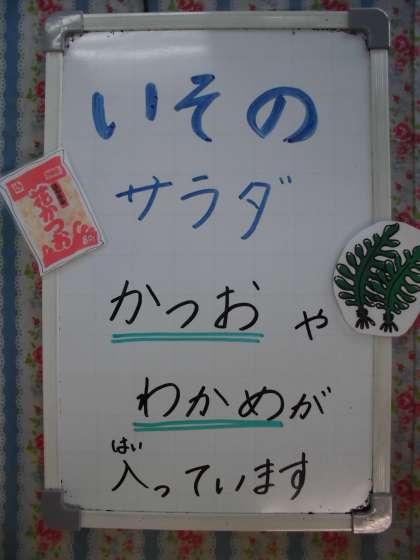 いその
サラダ
花かつお
かつおや
わかめが
はい
入っています